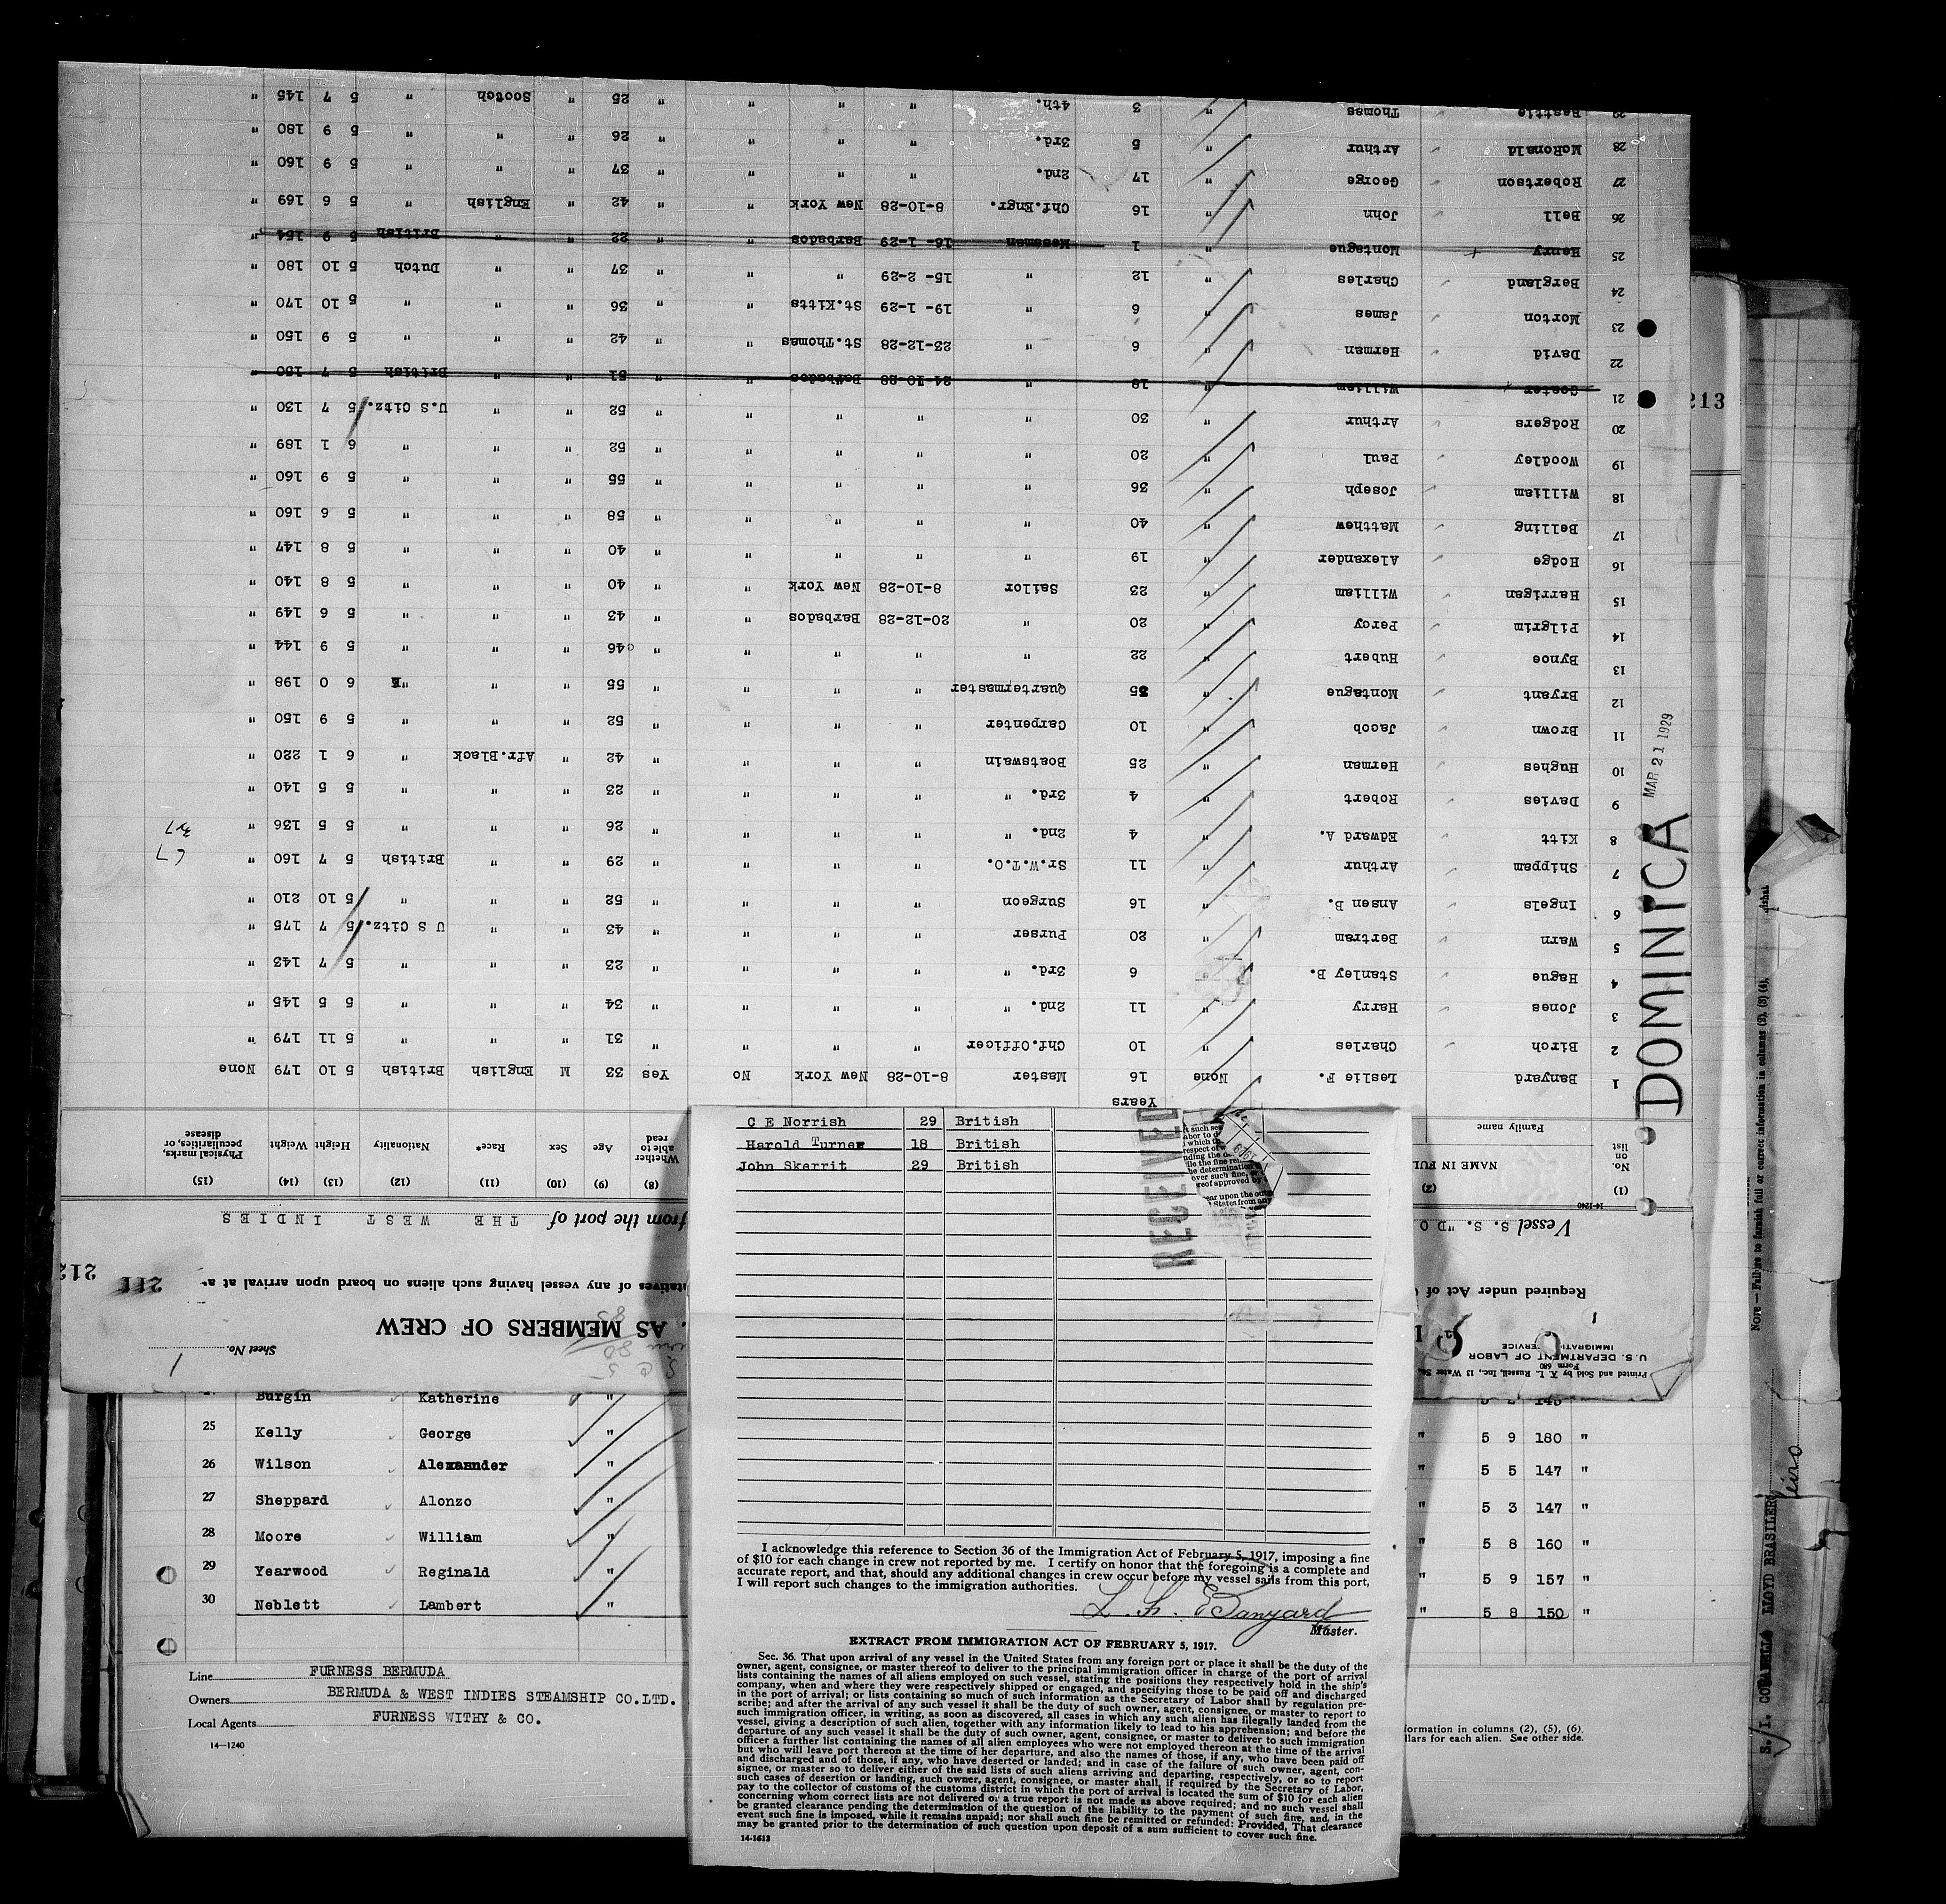 1
Sheet No.
Printed and Sold by A. L. Russell, Inc., 13 Water
Form 680
U. S. DEPARTMENT OF LABOR
IMMIGRATION SERVICE
AS MEMBERS OF CREW
211
212
Required under Act of
tatives of any vessel having such aliens on board upon arrival at a
Vessel S. S. "DO
from the port of THE WEST INDIES
14-1240
(1) (2) (8) (9) (10) (11) (12) (13) (14) (15)
No. on list NAME IN FUL Family name Whether able to read Age Sex Race* Nationality Height Weight Physical marks, peculiarities, or disease
Years
1 Banyard Leslie F. None 16 Master 8-10-28 New York No Yes 33 M English British 5 10 179 None
2 Birch Charles " 10 Chf.Officer " " " " 31 " " " 5 11 179 "
3 Jones Harry " 11 2nd. " " " " " 34 " " " 5 5 145 "
4 Hague Stanley B. " 6 3rd. " " " " " 23 " " " 5 7 143 "
5 Warn Bertram " 20 Purser " " " " 43 " " U S Citz. 5 7 175 "
6 Ingels Ansen B. " 16 Surgeon " " " " 52 " " " 5 10 210 "
7 Shippam Arthur " 11 Sr.W.T.O. " " " " 29 " " British 5 7 160 "
8 Kitt Edward A. " 4 2nd. " " " " " 26 " " " 5 5 136 "
9 Davies Robert " 4 3rd. " " " " " 23 " " " 5 5 140 "
10 Hughes Herman " 25 Boatswain " " " " 42 " Afr.Black " 6 1 220 "
11 Brown Jacob " 10 Carpenter " " " " 52 " " " 5 9 150 "
12 Bryant Montague " 35 Quartermaster " " " " 55 " " " 6 0 198 "
13 Bynoe Hubert " 22 " " " " " 46 " " " 5 9 144 "
14 Pilgrim Percy " 20 " 20-12-28 Barbados " " 43 " " " 5 6 149 "
15 Harrigan William " 23 Sailor 8-10-28 New York " " 40 " " " 5 8 140 "
16 Hodge Alexander " 19 " " " " " 40 " " " 5 8 147 "
17 Belling Matthew " 40 " " " " " 58 " " " 5 6 160 "
18 William Joseph " 36 " " " " " 55 " " " 5 9 160 "
19 Woodley Paul " 20 " " " " " 52 " " " 6 1 189 "
20 Rodgers Arthur " 30 " " " " " 52 " " U.S Citz. 5 7 130 "
21 William " 18 " 24-10-28 Barbados " " 51 " " British 5 7 150 "
22 David Herman " 6 " 23-12-28 St.Thomas " " 42 " " " 5 9 150 "
23 Morton James " 6 " 19- 1-29 St.Kitts " " 36 " " " 5 10 170 "
24 Bergland Charles " 12 " 15- 2-29 " " " 37 " " Dutch 5 10 180 "
25 Henry Montague " 1 Messman 16- 1-29 Barbados " " 22 " " British 5 9 154 "
26 Bell John " 16 Chf.Engr. 8-10-28 New York " " 42 " English " 5 6 169 "
27 Robertson George " 17 2nd. " " " " 37 " " " 5 9 160 "
28 McRonald Arthur " 5 3rd. " " " " 26 " " " 5 9 180 "
29 Beattie Thomas " 3 4th. " " " " 25 " Scotch " 5 7 145 "
DOMINICA
MAR 21 1929
213
C E Norrish 29 British
Harold Turner 18 British
John Skerrit 29 British
RECEIVED
I acknowledge this reference to Section 36 of the Immigration Act of February 5, 1917, imposing a fine
of $10 for each change in crew not reported by me. I certify on honor that the foregoing is a complete and
accurate report, and that, should any additional changes in crew occur before my vessel sails from this port,
I will report such changes to the immigration authorities.
L. F. Banyard
Master.
EXTRACT FROM IMMIGRATION ACT OF FEBRUARY 5, 1917.
Sec. 36. That upon arrival of any vessel in the United States from any foreign port or place it shall be the duty of the
owner, agent, consignee, or master thereof to deliver to the principal immigration officer in charge of the port of arrival
lists containing the names of all aliens employed on such vessel, stating the positions they respectively hold in the ship's
company, when and where they were respectively shipped or engaged, and specifying those to be paid off and discharged
in the port of arrival; or lists containing so much of such information as the Secretary of Labor shall by regulation pre-
scribe; and after the arrival of any such vessel it shall be the duty of such owner, agent, consignee, or master to report to
such immigration officer, in writing, as soon as discovered, all cases in which any such alien has illegally landed from the
vessel, giving a description of such alien, together with any information likely to lead to his apprehension; and before the
departure of any such vessel it shall be the duty of such owner, agent, consignee, or master to deliver to such immigration
officer a further list containing the names of all alien employees who were not employed thereon at the time of the arrival
but who will leave port thereon at the time of her departure, and also the names of those, if any, who have been paid off
and discharged and of those, if any, who have deserted or landed; and in case of the failure of such owner, agent, con-
signee, or master so to deliver either of the said lists of such aliens arriving and departing, respectively, or so to report
such cases of desertion or landing, such owner, agent, consignee, or master shall, if required by the Secretary of Labor,
pay to the collector of customs of the customs district in which the port of arrival is located the sum of $10 for each alien
concerning whom correct lists are not delivered or a true report is not made as above required; and no such vessel shall
be granted clearance pending the determination of the question of the liability to the payment of such fine, and, in the
event such fine is imposed, while it remains unpaid; nor shall such fine be remitted or refunded: Provided, That clearance
may be granted prior to the determination of such question upon deposit of a sum sufficient to cover such fine.
14-1613
Burgin Katherine "
25 Kelly George " " 5 9 180 "
26 Wilson Alexaander " " 5 5 147 "
27 Sheppard Alonzo " " 5 3 147 "
28 Moore William " " 5 8 160 "
29 Yearwood Reginald " " 5 9 157 "
30 Neblett Lambert " " 5 8 150 "
Line FURNESS BERMUDA
Owners BERMUDA & WEST INDIES STEAMSHIP CO.LTD.
Local Agents FURNESS WITHY & CO.
14—1240
formation in columns (2), (5), (6)
llars for each alien. See other side.
NOTE—Failure to furnish full or correct information in columns (2), (3) (4),
LLOYD BRASILERO